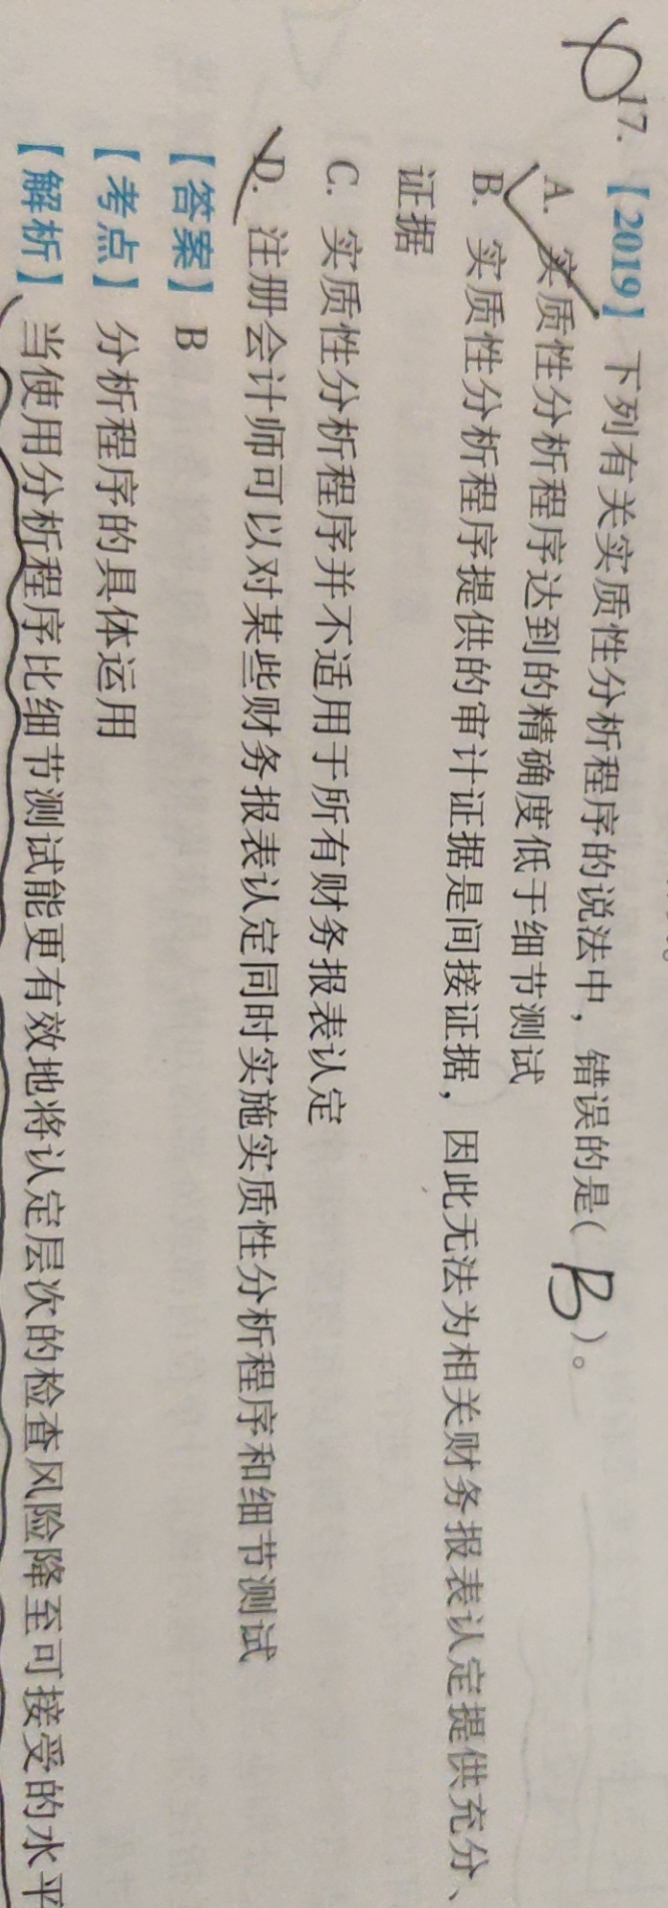 17. 【2019】下列有关实质性分析程序的说法中，错误的是( B )。
A. 实质性分析程序达到的精确度低于细节测试
B. 实质性分析程序提供的审计证据是间接证据，因此无法为相关财务报表认定提供充分、
证据
C. 实质性分析程序并不适用于所有财务报表认定
D. 注册会计师可以对某些财务报表认定同时实施实质性分析程序和细节测试
【答案】B
【考点】分析程序的具体运用
【解析】当使用分析程序比细节测试能更有效地将认定层次的检查风险降至可接受的水平